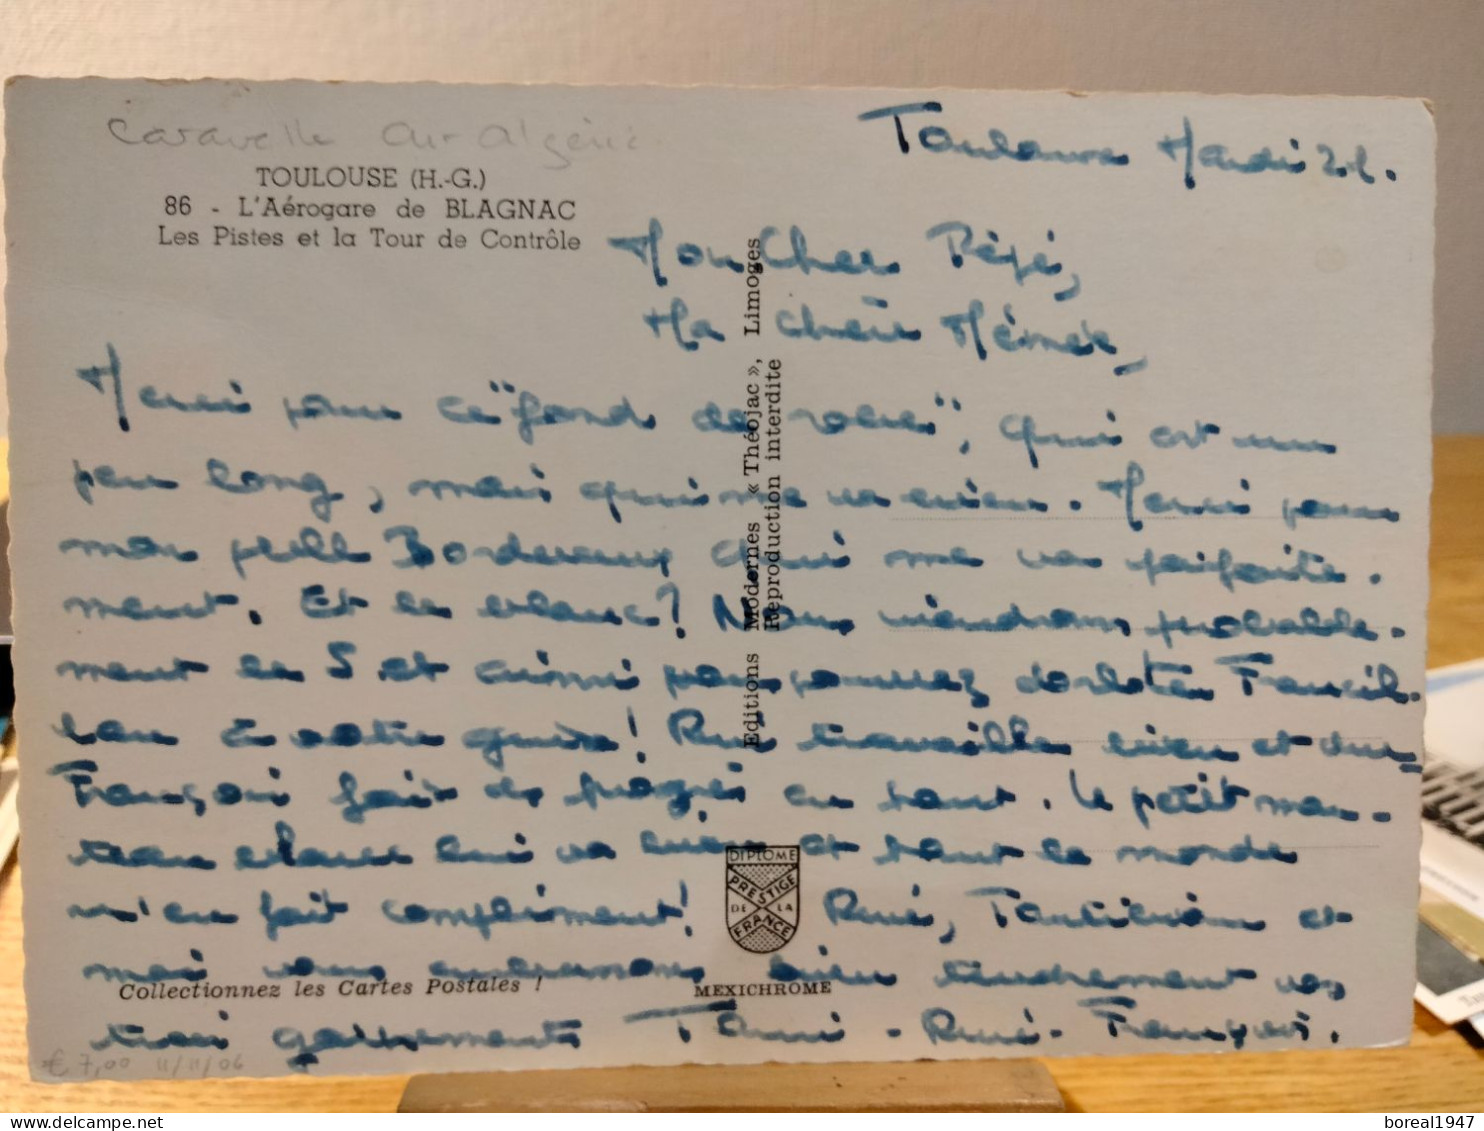 Caravelle Air Algérie
TOULOUSE (H.-G.)
86 - L'Aérogare de BLAGNAC
Les Pistes et la Tour de Contrôle
Toulouse Mardi 21.
Mon Cher Pépé,
Ma chère Mémée,
Merci pour ce "fond de robe", qui est un
peu long, mais qui me va bien. Merci pour
mon pull Bordeaux qui me va parfaite-
ment. Et le blanc? Nous viendrons probable-
ment le 5 et ainsi vous pourrez dorloter
à votre guise! René travaille bien et
François fait des progrès en tout. Le petit man-
teau blanc lui va bien et tout le monde
m'en fait compliment! René, et
moi vous embrassons bien tendrement vos
trois garnements - René - François.
Editions Modernes « Théojac », Limoges
Reproduction interdite
DIPLOME
PRESTIGE
DE LA
FRANCE
Collectionnez les Cartes Postales !
MEXICHROME
€ 7,00 11/11/06
boreal1947